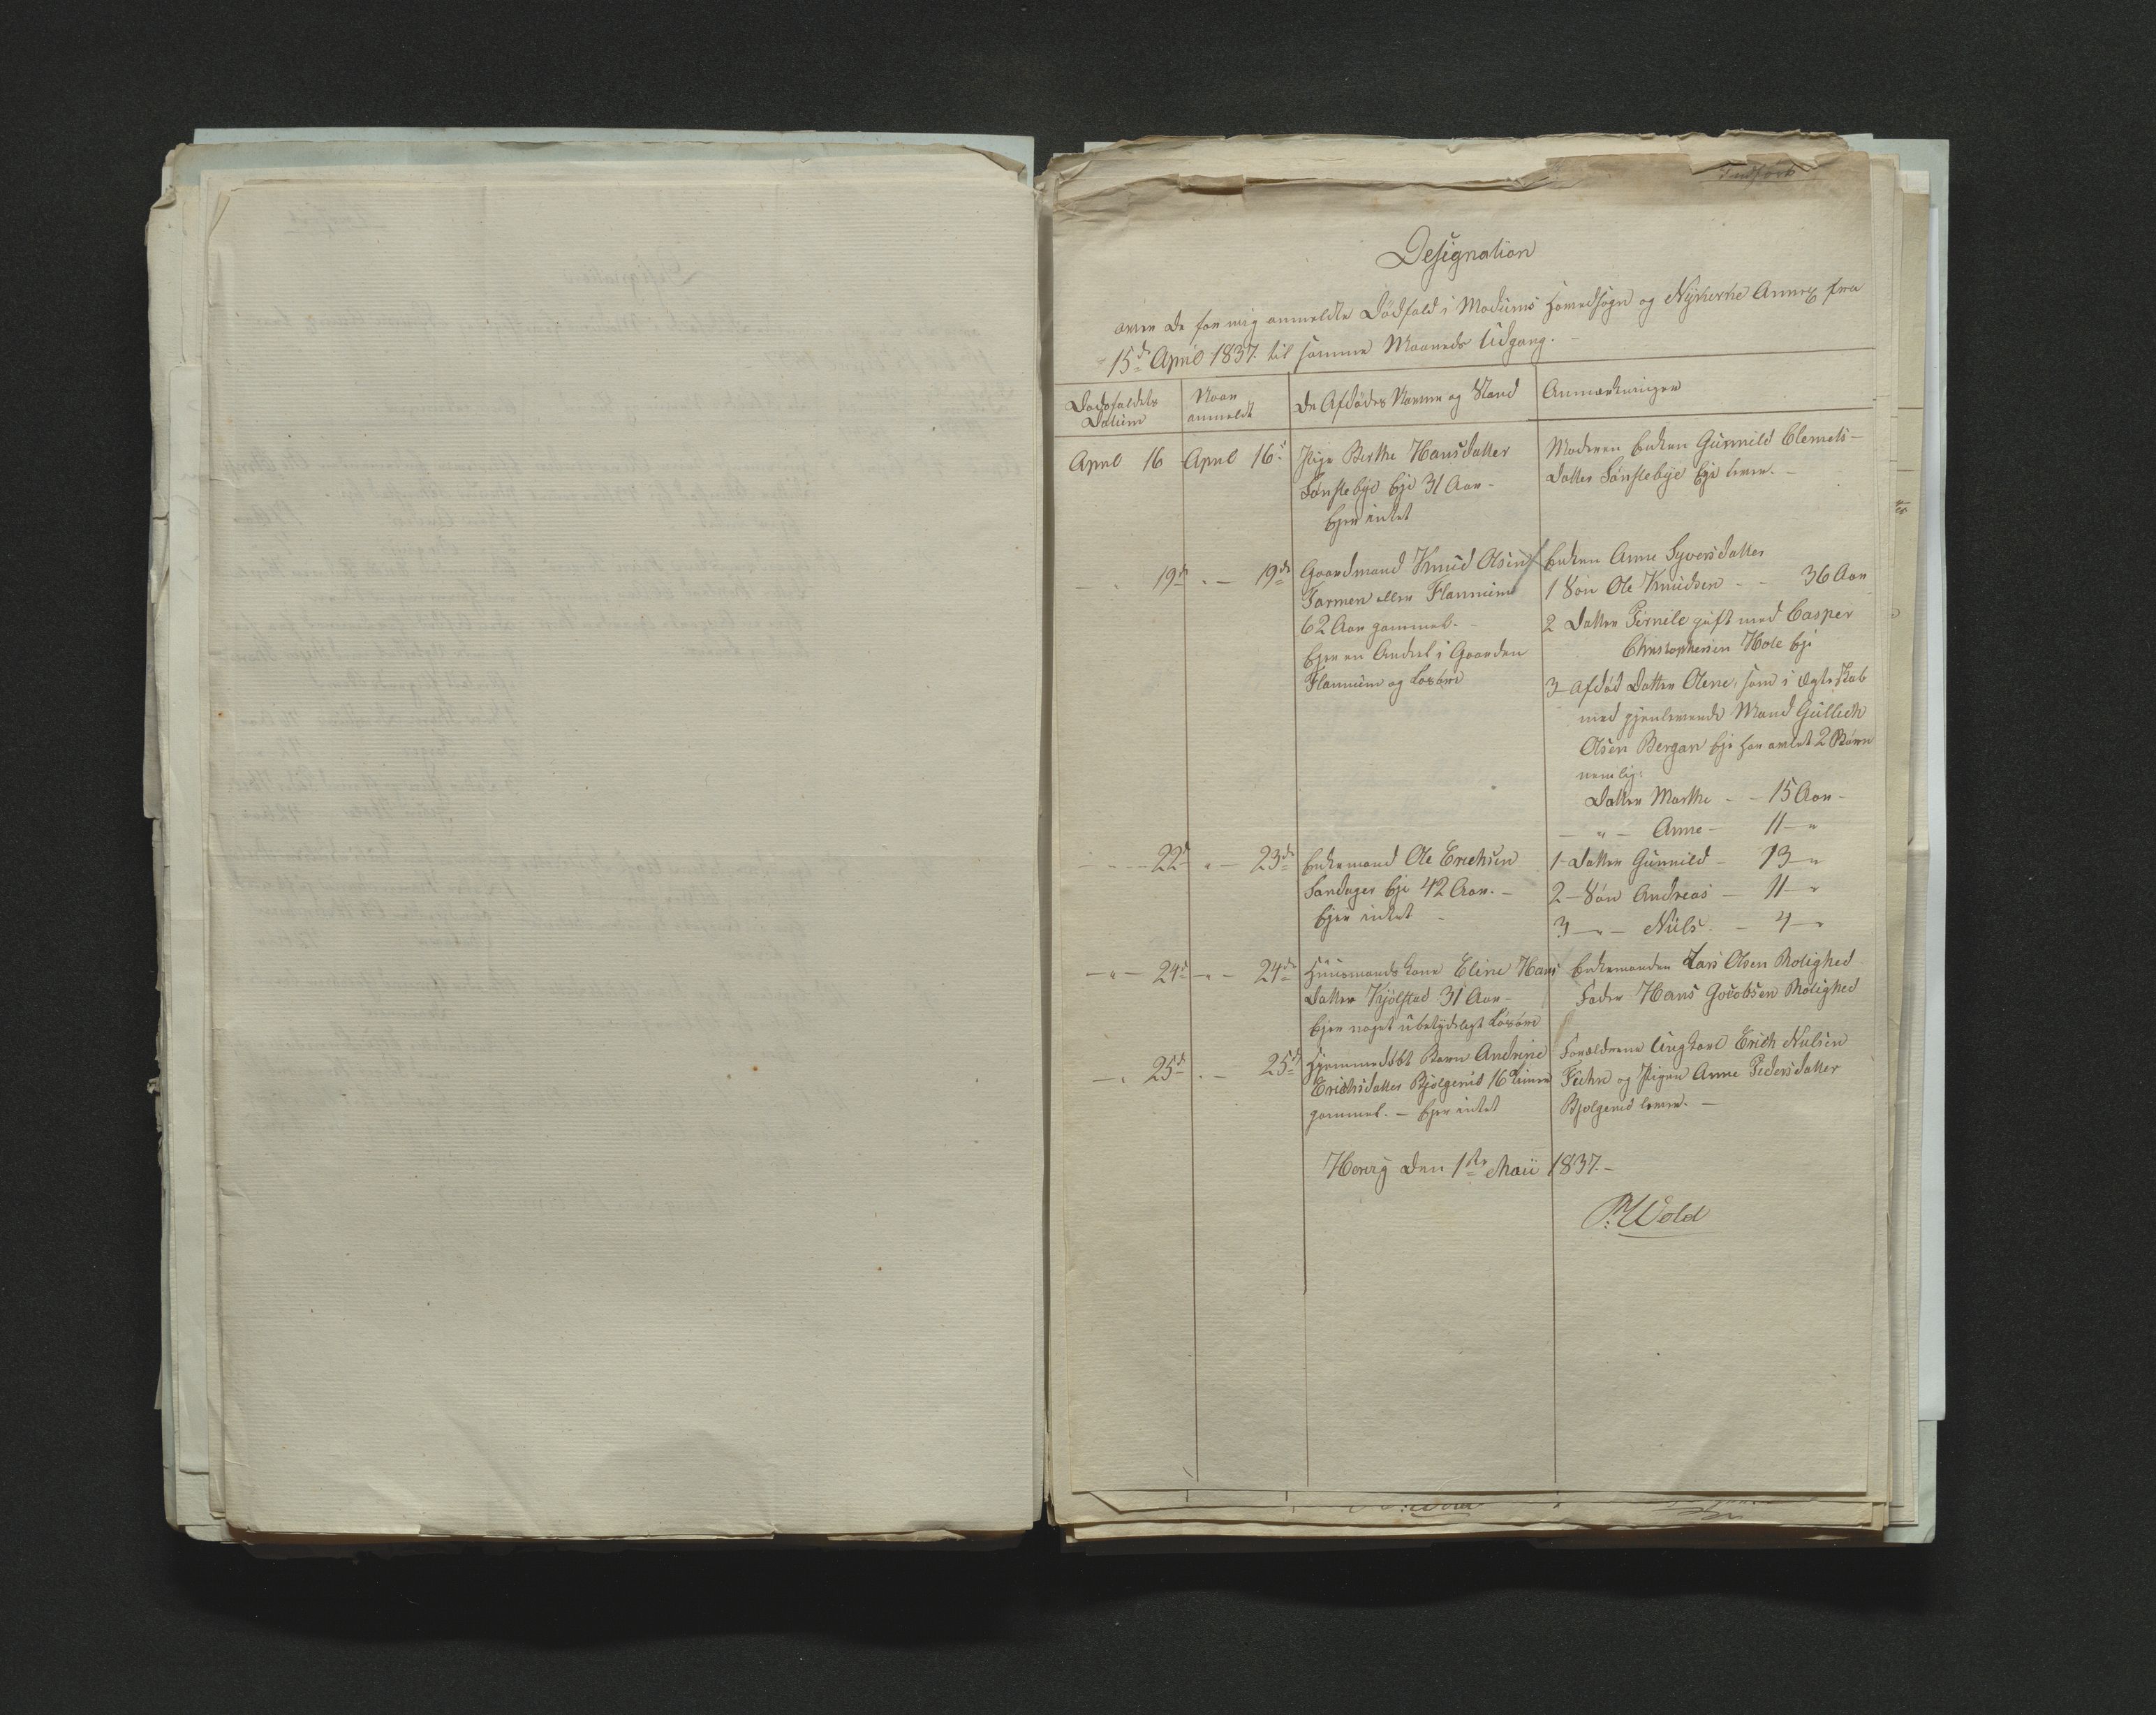 Indført
Designation
over de for mig anmeldte Dødsfald i Modums Hovedsogn og Nykirke Annex fra
15de April 1837 til samme Maaneds Udgang. -
Dødsfaldets Datum
Naar anmeldt
De Afdødes Navne og Stand
Anmærkninger
April 16 April 16de Pige Berthe Hansdatter
Sønstebye Eje 31 Aar -
Ejer intet
Moderen Enken Gunnild Clemets-
datter Sønstebye Eje lever. -
19de 19de Gaardmand Knud Olsen
Farmen eller Flannum
62 Aar gammel. -
Ejer en Andeel i Gaarden
Flannum og Løsøre
Enken Anne Syversdatter
1 Søn Ole Knudsen - - 36 Aar
2 Datter Pernile gift med Casper
Christophersen Hole Eje
3 Afdød Datter Olene, som i Ægteskab
med gjenlevende Mand Gullich
Olsen Bergan Eje har avlet 2 Børn
nemlig:
Datter Marthe - - 15 Aar -
- " - Anne - 11 - "
22de " - 23de Enkemand Ole Erichsen
Sandager Eje 42 Aar. -
Ejer intet -
1 - Datter Gunnild - 13 - "
2 - Søn Andreas - 11 - "
3 - " - Niels. - 4 - "
- " - 24de - " - 24de Huusmandskone Eline Hans
datter Kjølstad 31 Aar -
Ejer noget ubetydeligt Løsøre
Enkemanden Lars Olsen Rolighed
Fader Hans Jocobsen Rolighed
25de 25de Hjemmedøbt Barn Andrine
Erichsdatter Bjølgerud 16 Timer
gammel. - Ejer intet
Forældrene Ungkarl Erich Nielsen
og Pigen Anne Pedersdatter
Bjølgerud lever. -
Hovrig den 1ste Maii 1837. -
P. Wold